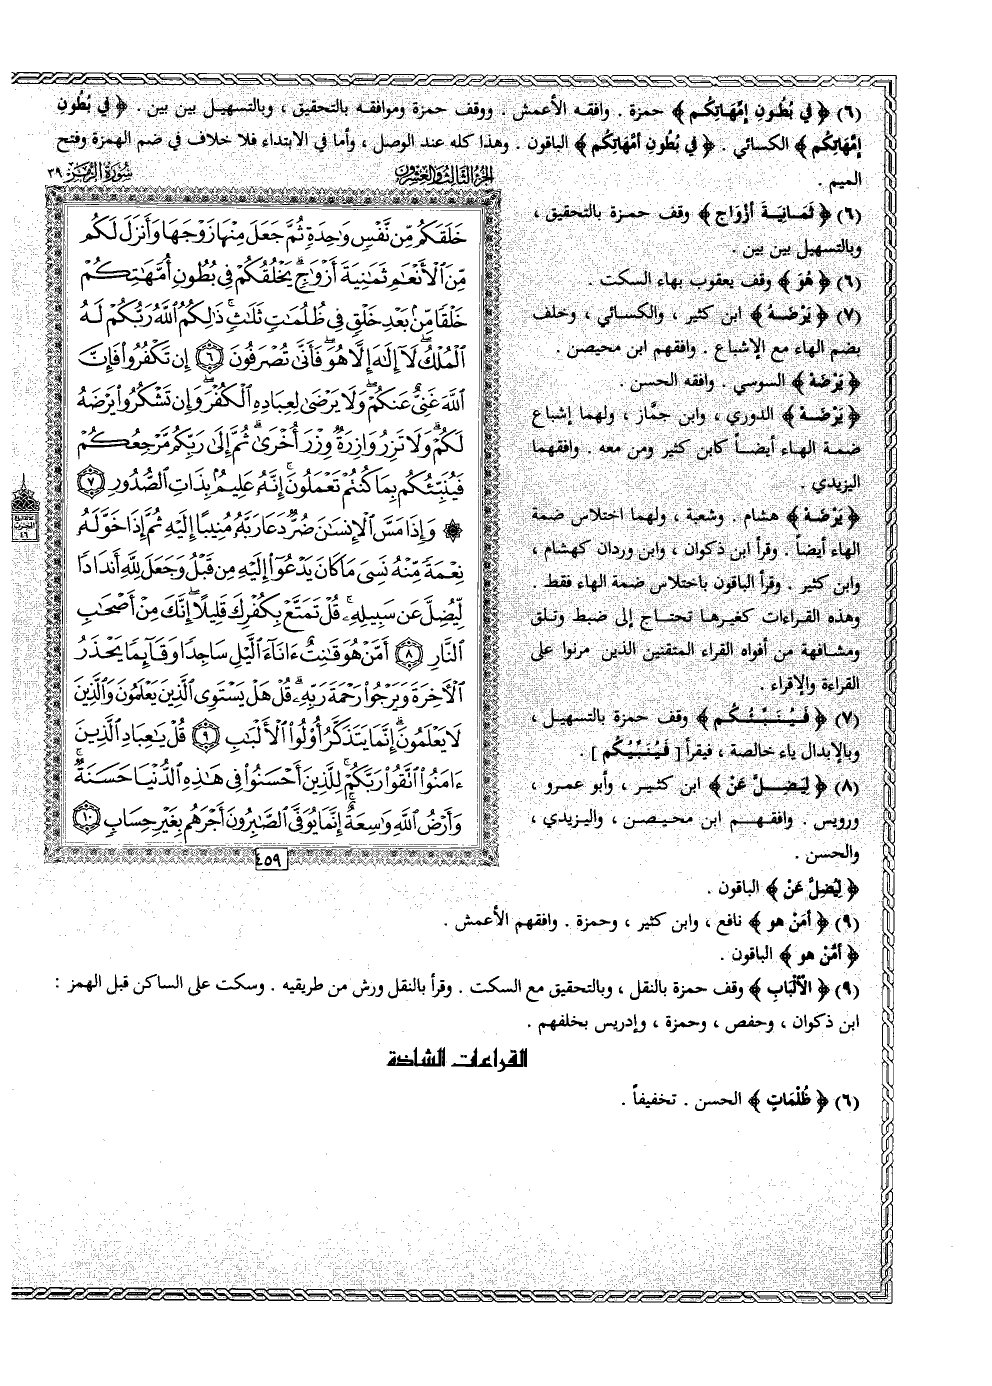 (٦) ﴿ فِي بُطُونِ إِمِّهَاتِكُم ﴾ حمزة . وافقه الأعمش . ووقف حمزة وموافقه بالتحقيق ، وبالتسهيل بين بين . ﴿ فِي بُطُونِ
إِمَّهَاتِكُم ﴾ الكسائي . ﴿ فِي بُطُونِ أُمَّهَاتِكُم ﴾ الباقون . وهذا كله عند الوصل ، وأما في الابتداء فلا خلاف في ضم الهمزة وفتح
الميم .
(٦) ﴿ ثَمَانِيَةَ أَزْوَاجٍ ﴾ وقف حمزة بالتحقيق ،
وبالتسهيل بين بين .
(٦) ﴿ هُوَ ﴾ وقف يعقوب بهاء السكت .
(٧) ﴿ يَرْضَهُ ﴾ ابن كثير ، والكسائي ، وخلف
بضم الهاء مع الإشباع . وافقهم ابن محيصن .
﴿ يَرْضَهْ ﴾ السوسي . وافقه الحسن .
﴿ يَرْضَهْ ﴾ الدوري ، وابن جمَّاز ، ولهما إشباع
ضمة الهاء أيضاً كابن كثير ومن معه . وافقهما
اليزيدي .
﴿ يَرْضَهْ ﴾ هشام . وشعبة ، ولهما اختلاس ضمة
الهاء أيضاً . وقرأ ابن ذكوان ، وابن وردان كهشام ،
وابن كثير . وقرأ الباقون باختلاس ضمة الهاء فقط .
وهذه القراءات كغيرها تحتاج إلى ضبط وتلق
ومشافهة من أفواه القراء المتقنين الذين مرنوا على
القراءة والإقراء .
(٧) ﴿ فَيُنَبِّئُكُم ﴾ وقف حمزة بالتسهيل ،
وبالإبدال ياء خالصة ، فيقرأ [ فَيُنَبِّيُكُم ] .
(٨) ﴿ لِيَضِلَّ عَنْ ﴾ ابن كثير ، وأبو عمرو ،
ورويس . وافقهم ابن محيصن ، واليزيدي ،
والحسن .
﴿ لِيُضِلَّ عَنْ ﴾ الباقون .
(٩) ﴿ أَمَنْ هو ﴾ نافع ، وابن كثير ، وحمزة . وافقهم الأعمش .
﴿ أَمَّنْ هو ﴾ الباقون .
(٩) ﴿ الأَلْبَابِ ﴾ وقف حمزة بالنقل ، وبالتحقيق مع السكت . وقرأ بالنقل ورش من طريقيه . وسكت على الساكن قبل الهمز :
ابن ذكوان ، وحفص ، وحمزة ، وإدريس بخلفهم .
القراءات الشاذة
(٦) ﴿ ظُلْمَاتٍ ﴾ الحسن . تخفيفاً .
الجزء الثالث والعشرون
سورة الزمر ٣٩
خَلَقَكُم مِّن نَّفْسٍ وَٰحِدَةٍ ثُمَّ جَعَلَ مِنْهَا زَوْجَهَا وَأَنزَلَ لَكُم
مِّنَ ٱلْأَنْعَٰمِ ثَمَٰنِيَةَ أَزْوَٰجٍ ۚ يَخْلُقُكُمْ فِي بُطُونِ أُمَّهَٰتِكُمْ
خَلْقًا مِّنۢ بَعْدِ خَلْقٍ فِي ظُلُمَٰتٍ ثَلَٰثٍ ۚ ذَٰلِكُمُ ٱللَّهُ رَبُّكُمْ لَهُ
ٱلْمُلْكُ ۖ لَآ إِلَٰهَ إِلَّا هُوَ ۖ فَأَنَّىٰ تُصْرَفُونَ ٦ إِن تَكْفُرُوا۟ فَإِنَّ
ٱللَّهَ غَنِيٌّ عَنكُمْ ۖ وَلَا يَرْضَىٰ لِعِبَادِهِ ٱلْكُفْرَ ۖ وَإِن تَشْكُرُوا۟ يَرْضَهُ
لَكُمْ ۗ وَلَا تَزِرُ وَازِرَةٌ وِزْرَ أُخْرَىٰ ۗ ثُمَّ إِلَىٰ رَبِّكُم مَّرْجِعُكُمْ
فَيُنَبِّئُكُم بِمَا كُنتُمْ تَعْمَلُونَ ۚ إِنَّهُ عَلِيمٌۢ بِذَاتِ ٱلصُّدُورِ ٧
۞ وَإِذَا مَسَّ ٱلْإِنسَٰنَ ضُرٌّ دَعَا رَبَّهُ مُنِيبًا إِلَيْهِ ثُمَّ إِذَا خَوَّلَهُ
نِعْمَةً مِّنْهُ نَسِيَ مَا كَانَ يَدْعُوٓا۟ إِلَيْهِ مِن قَبْلُ وَجَعَلَ لِلَّهِ أَندَادًا
لِّيُضِلَّ عَن سَبِيلِهِ ۚ قُلْ تَمَتَّعْ بِكُفْرِكَ قَلِيلًا ۖ إِنَّكَ مِنْ أَصْحَٰبِ
ٱلنَّارِ ٨ أَمَّنْ هُوَ قَٰنِتٌ ءَانَآءَ ٱلَّيْلِ سَاجِدًا وَقَآئِمًا يَحْذَرُ
ٱلْأٓخِرَةَ وَيَرْجُوا۟ رَحْمَةَ رَبِّهِ ۗ قُلْ هَلْ يَسْتَوِي ٱلَّذِينَ يَعْلَمُونَ وَٱلَّذِينَ
لَا يَعْلَمُونَ ۗ إِنَّمَا يَتَذَكَّرُ أُو۟لُوا۟ ٱلْأَلْبَٰبِ ٩ قُلْ يَٰعِبَادِ ٱلَّذِينَ
ءَامَنُوا۟ ٱتَّقُوا۟ رَبَّكُمْ ۚ لِلَّذِينَ أَحْسَنُوا۟ فِي هَٰذِهِ ٱلدُّنْيَا حَسَنَةٌ ۗ
وَأَرْضُ ٱللَّهِ وَٰسِعَةٌ ۗ إِنَّمَا يُوَفَّى ٱلصَّٰبِرُونَ أَجْرَهُم بِغَيْرِ حِسَابٍ ١٠
٤٥٩
الحزب
٤٦